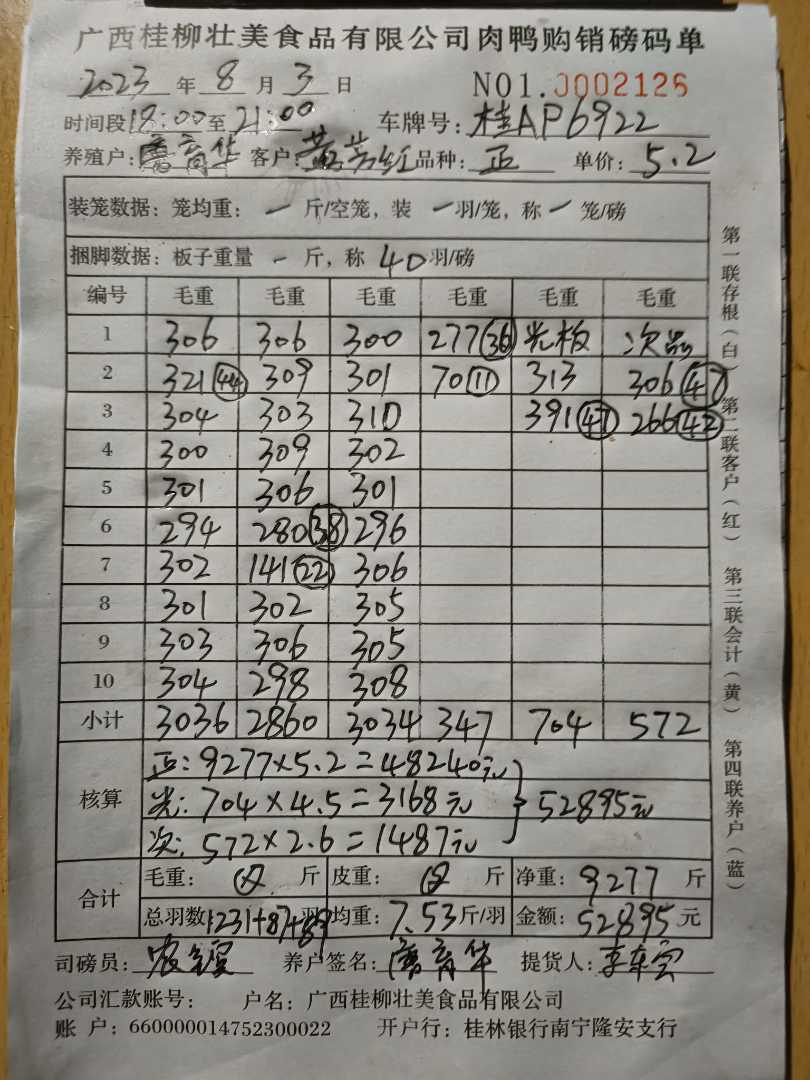 广西桂柳壮美食品有限公司肉鸭购销磅码单
2023 年 8 月 3 日 NO1.0002126
时间段 18:00 至 21:00 车牌号: 桂AP6922
养殖户: 育华 客户: 黄芳红 品种: 正 单价: 5.2
装笼数据: 笼均重: 一 斤/空笼, 装 一 羽/笼, 称 一 笼/磅
捆脚数据: 板子重量 - 斤, 称 40 羽/磅
编号 毛重 毛重 毛重 毛重 毛重 毛重
1 306 306 300 277(36) 光板 次品
2 321(44) 309 301 70(11) 313 306(47)
3 304 303 310 391(41) 266(42)
4 300 309 302
5 301 306 301
6 294 280(38) 296
7 302 141(22) 306
8 301 302 305
9 303 306 305
10 304 298 308
小计 3036 2860 3034 347 704 572
核算 正: 9277×5.2=48240元
光: 704×4.5=3168元 } 52895元
次: 572×2.6=1487元
合计 毛重: 斤 皮重: 斤 净重: 9277 斤
总羽数 1231+87+89 羽 均重: 7.53 斤/羽 金额: 52895 元
司磅员: 养户签名: 育华 提货人: 李
公司汇款账号: 户名: 广西桂柳壮美食品有限公司
账 户: 660000014752300022 开户行: 桂林银行南宁隆安支行
第一联存根(白) 第二联客户(红) 第三联会计(黄) 第四联养户(蓝)